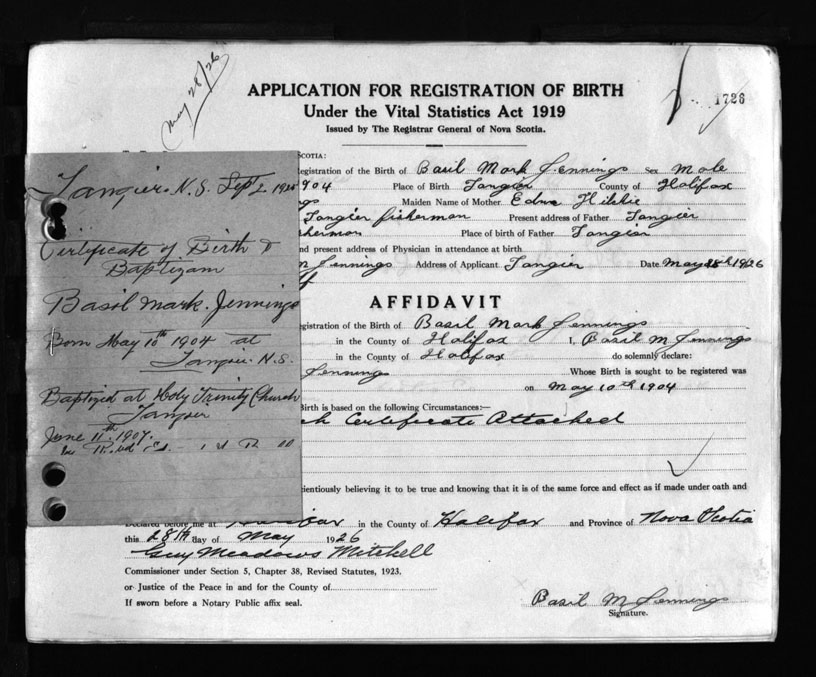 May 28/26
1726
APPLICATION FOR REGISTRATION OF BIRTH
Under the Vital Statistics Act 1919
Issued by The Registrar General of Nova Scotia.
SCOTIA:
egistration of the Birth of Basil Mark Jennings Sex Male
904 Place of Birth Tangier County of Halifax
gs Maiden Name of Mother Edna Hilchie
Tangier fisherman Present address of Father Tangier
sherman Place of birth of Father Tangier
nd present address of Physician in attendance at birth
M Jennings Address of Applicant Tangier Date May 28th 1926
Tangier. N.S. Sept 2. 1925
Certificate of Birth &
Baptizam
Basil Mark. Jennings
Born May 10th 1904 at
Tangier. N.S.
Baptized at Holy Trinity Church
Tangier
June 11th. 1907.
AFFIDAVIT
egistration of the Birth of Basil Mark Jennings
in the County of Halifax I, Basil M Jennings
in the County of Halifax do solemnly declare:
Jennings Whose Birth is sought to be registered was
on May 10th 1904
Birth is based on the following Circumstances:—
ch Certificate Attached
cientiously believing it to be true and knowing that it is of the same force and effect as if made under oath and
Declared before me at Halifax in the County of Halifax and Province of Nova Scotia
this 28th day of May 1926
Guy Meadows Mitchell
Commissioner under Section 5, Chapter 38, Revised Statutes, 1923.
or Justice of the Peace in and for the County of
If sworn before a Notary Public affix seal.
Basil M Jennings
Signature.